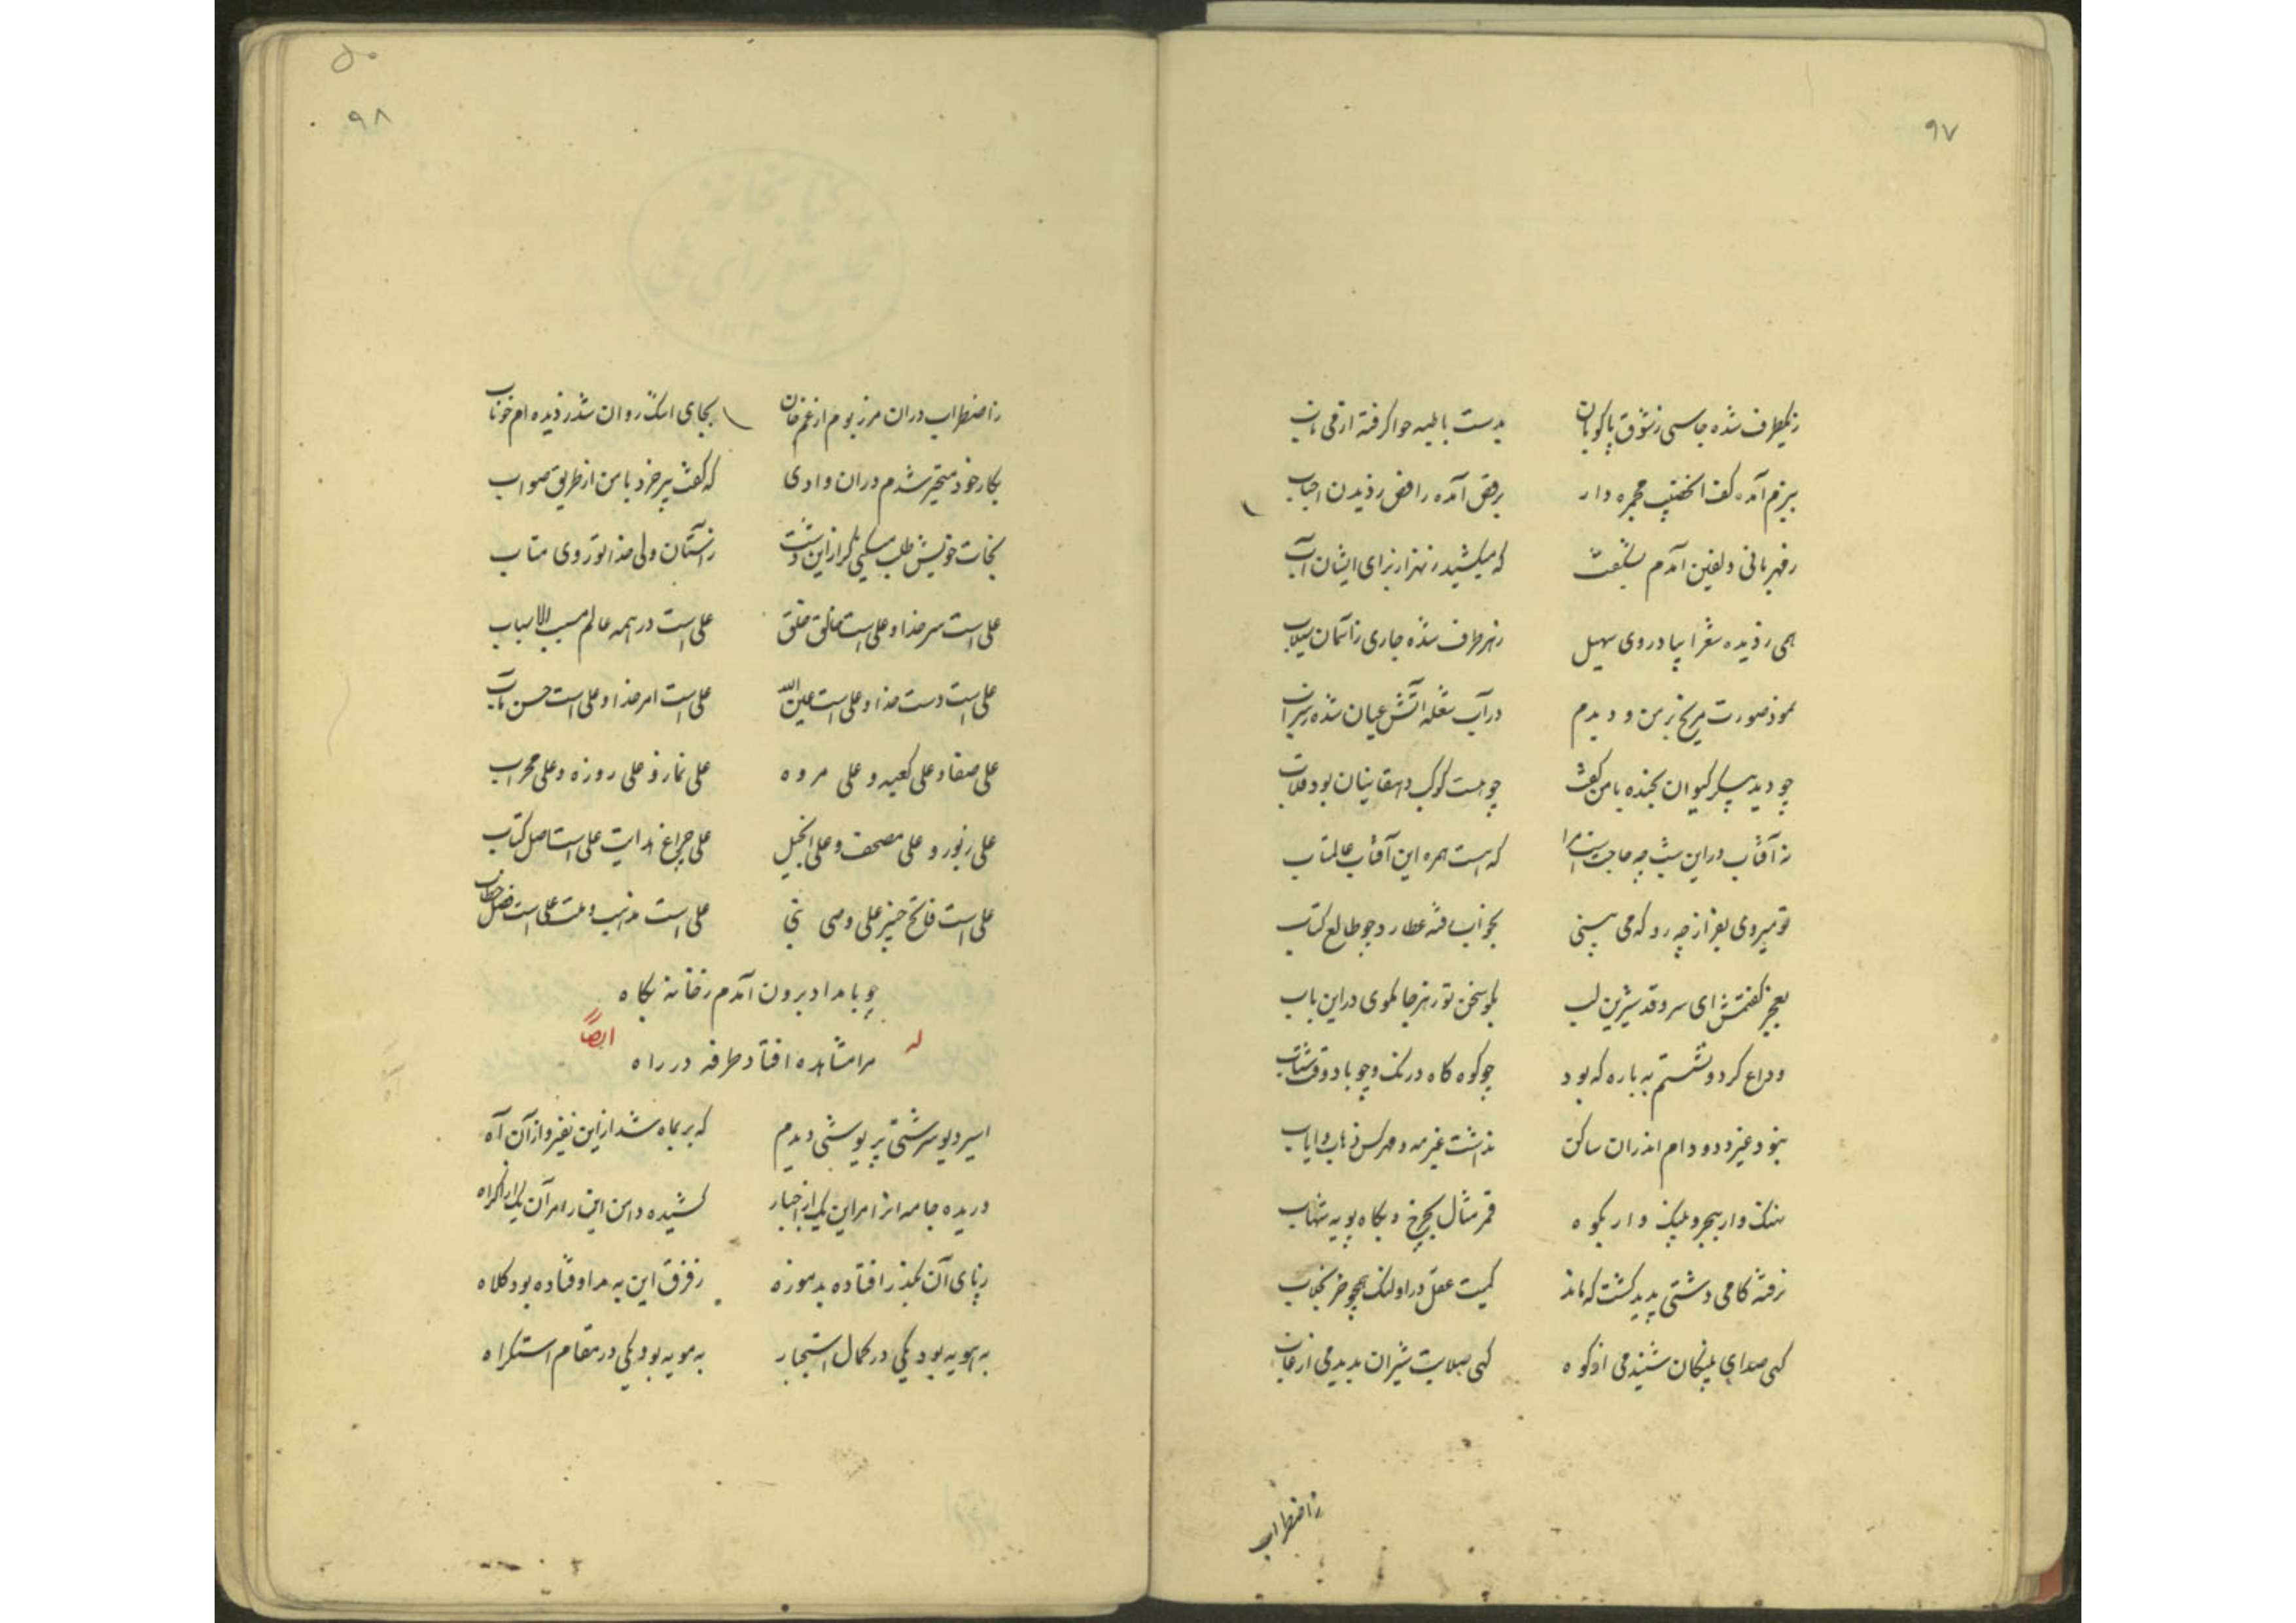 ۹۷
زیکطرف شده جاسی زشوق پاکوبان
بدست بالبسه حوا گرفته از قی ناب
ببزم آمده کف الخضیب مجمره دار
برقص آمده راقص زدیدن احباب
زقهرمانی دلفین آمدم بشگفت
که میکشید زنهر از برای ایشان آب
همی زدیده شعرا پیاد روی سهیل
زهر طرف شده جاری زآسمان سیلاب
نمود صورت مریخ بر من و دیدم
در آب شعله آتش عیان شده زسراب
چو دید پیکر کیوان بخنده با من گفت
چو هست کوکب دهقانیان بود قلاب
نه آفتاب در این شب چه حاجتست مرا
که هست همره این آفتاب عالمتاب
تو میروی بفراز چه رو که می بینی
بخواب فته عطارد چو طالع کتاب
بعجز گفتمش ای سرو قد شیرین لب
بگو سخن تو زهر جا مگوی در این باب
وداع کرد و نشستم به باره که بود
چو کوه گاه درنگ و چو باد وقت شتاب
نبود غیر دد و دام اندران ساکن
نداشت غیر مه و مهر کس ذهاب و ایاب
نهنگ وار ببحر و پلنگ وار بکوه
قمر مثال بچرخ و بگاه پویه شهاب
نرفته گامی دشتی پدید گشت که ماند
کمیت عقل در او لنگ همچو خر بخلاب
گهی صدای پلنگان شنیدمی از کوه
گهی صلابت شیران بدیدمی از غاب
زاضطراب
۹۸
زاضطراب در آن مرز بوم از غم جان
بجای اشک روان شد زدیده ام خوناب
بکار خود متحیر شدم در آن وادی
که گفت پیر خرد با من از طریق صواب
نجات خویش طلب میکنی گر از این دشت
زآستان ولی خدا تو روی متاب
علی است سر خدا و علی است خالق خلق
علی است در همه عالم مسبب الاسباب
علی است دست خدا و علی است عین الله
علی است امر خدا و علی است حسن مآب
علی صفا و علی کعبه و علی مروه
علی نماز و علی روزه و علی محراب
علی زبور و علی مصحف و علی انجیل
علی چراغ هدایت علی است اصل کتاب
علی است فاتح خیبر علی وصی نبی
علی است مذهب و ملت علی است فصل خطاب
چو بامداد برون آمدم زخانه بگاه
له ایضاً
مرا مشاهده افتاد طرفه در راه
اسیر دیو سرشتی پریوشی دیدم
که بر بماه شد از این نفیر و از آن آه
دریده جامه از امر این یک از اجبار
کشیده دامن این را مر آن یک از اکراه
زپای آن بگذر افتاده بد موزه
زفرق این به مدا وفتاده بود کلاه
به مویه بود یکی در کمال استجبار
به مویه بود یکی در مقام استکراه